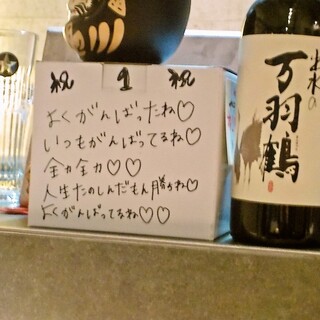 祝 1 祝
よくがんばったね♡
いつもがんばってるね♡
全力全力♡♡
人生たのしんだもん勝ちね♡
よくがんばってるね♡♡
出水の
万羽鶴